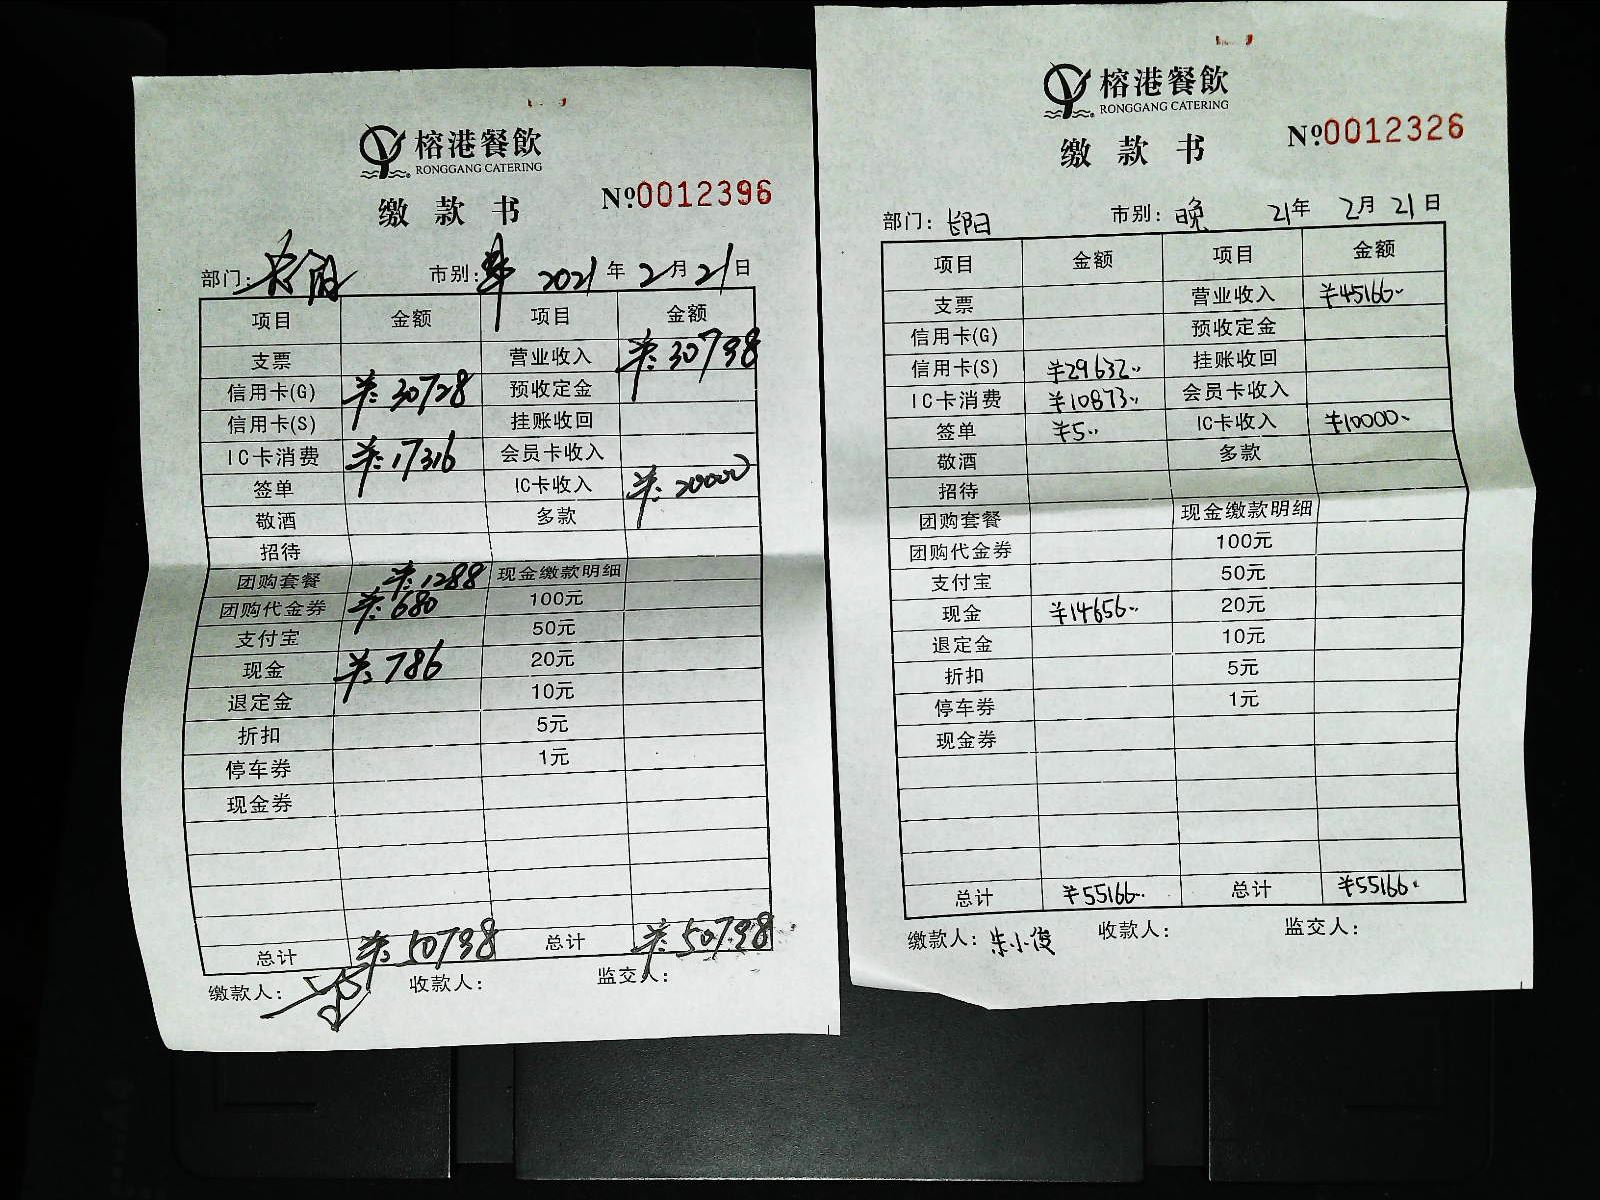 榕港餐飲
RONGGANG CATERING
缴款书
№0012396
部门: 市别: 2021年2月21日
项目 金额 项目 金额
支票 营业收入 ¥:30798
信用卡(G) ¥:30728 预收定金
信用卡(S) 挂账收回
IC卡消费 ¥:17316 会员卡收入
签单 IC卡收入 ¥:20000
敬酒 多款
招待
团购套餐 ¥:1288 现金缴款明细
团购代金券 ¥:680 100元
支付宝 50元
现金 ¥:786 20元
退定金 10元
折扣 5元
停车券 1元
现金券
总计 ¥:50798 总计 ¥:50798
缴款人: 收款人: 监交人:
榕港餐飲
RONGGANG CATERING
缴款书
№0012326
部门: 市别:晚 21年2月21日
项目 金额 项目 金额
支票 营业收入 ¥45166
信用卡(G) 预收定金
信用卡(S) ¥29632 挂账收回
IC卡消费 ¥10873 会员卡收入
签单 ¥5 IC卡收入 ¥10000
敬酒 多款
招待
团购套餐 现金缴款明细
团购代金券 100元
支付宝 50元
现金 ¥14656 20元
退定金 10元
折扣 5元
停车券 1元
现金券
总计 ¥55166 总计 ¥55166
缴款人:朱小俊 收款人: 监交人: